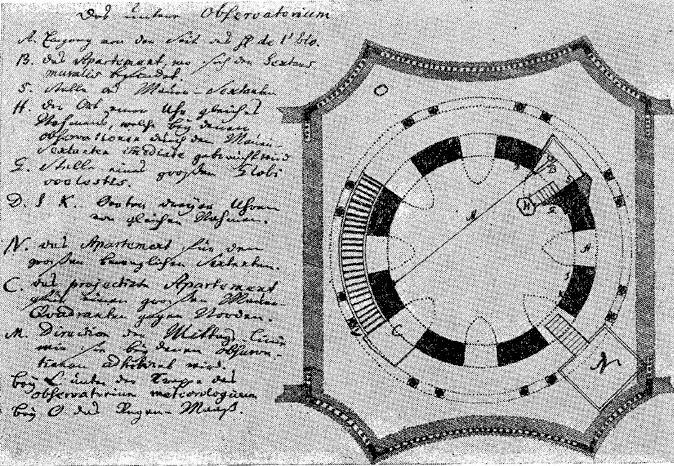 Das untere Observatorium
A. Eingang von der Seit des de l'Isle.
B. das Apartement, wo sich der Sextans
muralis befindet.
S. Stelle des Mauer-Sextanten
H. der Ort einer Uhr gleiches
Nahmens, welche bey denen
observationen durch den Mauer-
Sextanten gebraucht wird
G. Stelle eines großen Globi
coelestis.
D. I K. Orter dreyer Uhren
von gleichen Nahmen.
N. das Apartement für den
großen beweglichen Sextanten.
C. das projectirte Apartement
für einen großen Mauer-
Quadranten gegen Norden.
M. Direction der Mittags Linie
wie sie bey denen observa-
tionen wird.
bey L unter der Treppe das
observatorium meteorologicum
bey O das Regen-Maaß.
O
B
M
A
C
N